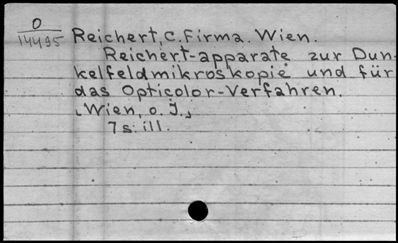 O
14495
Reichert, C. Firma. Wien.
Reichert-apparate zur Dun-
kelfeldmikroskopie und für
das Opticolor-Verfahren.
[Wien, o. J.]
7 s. ill.